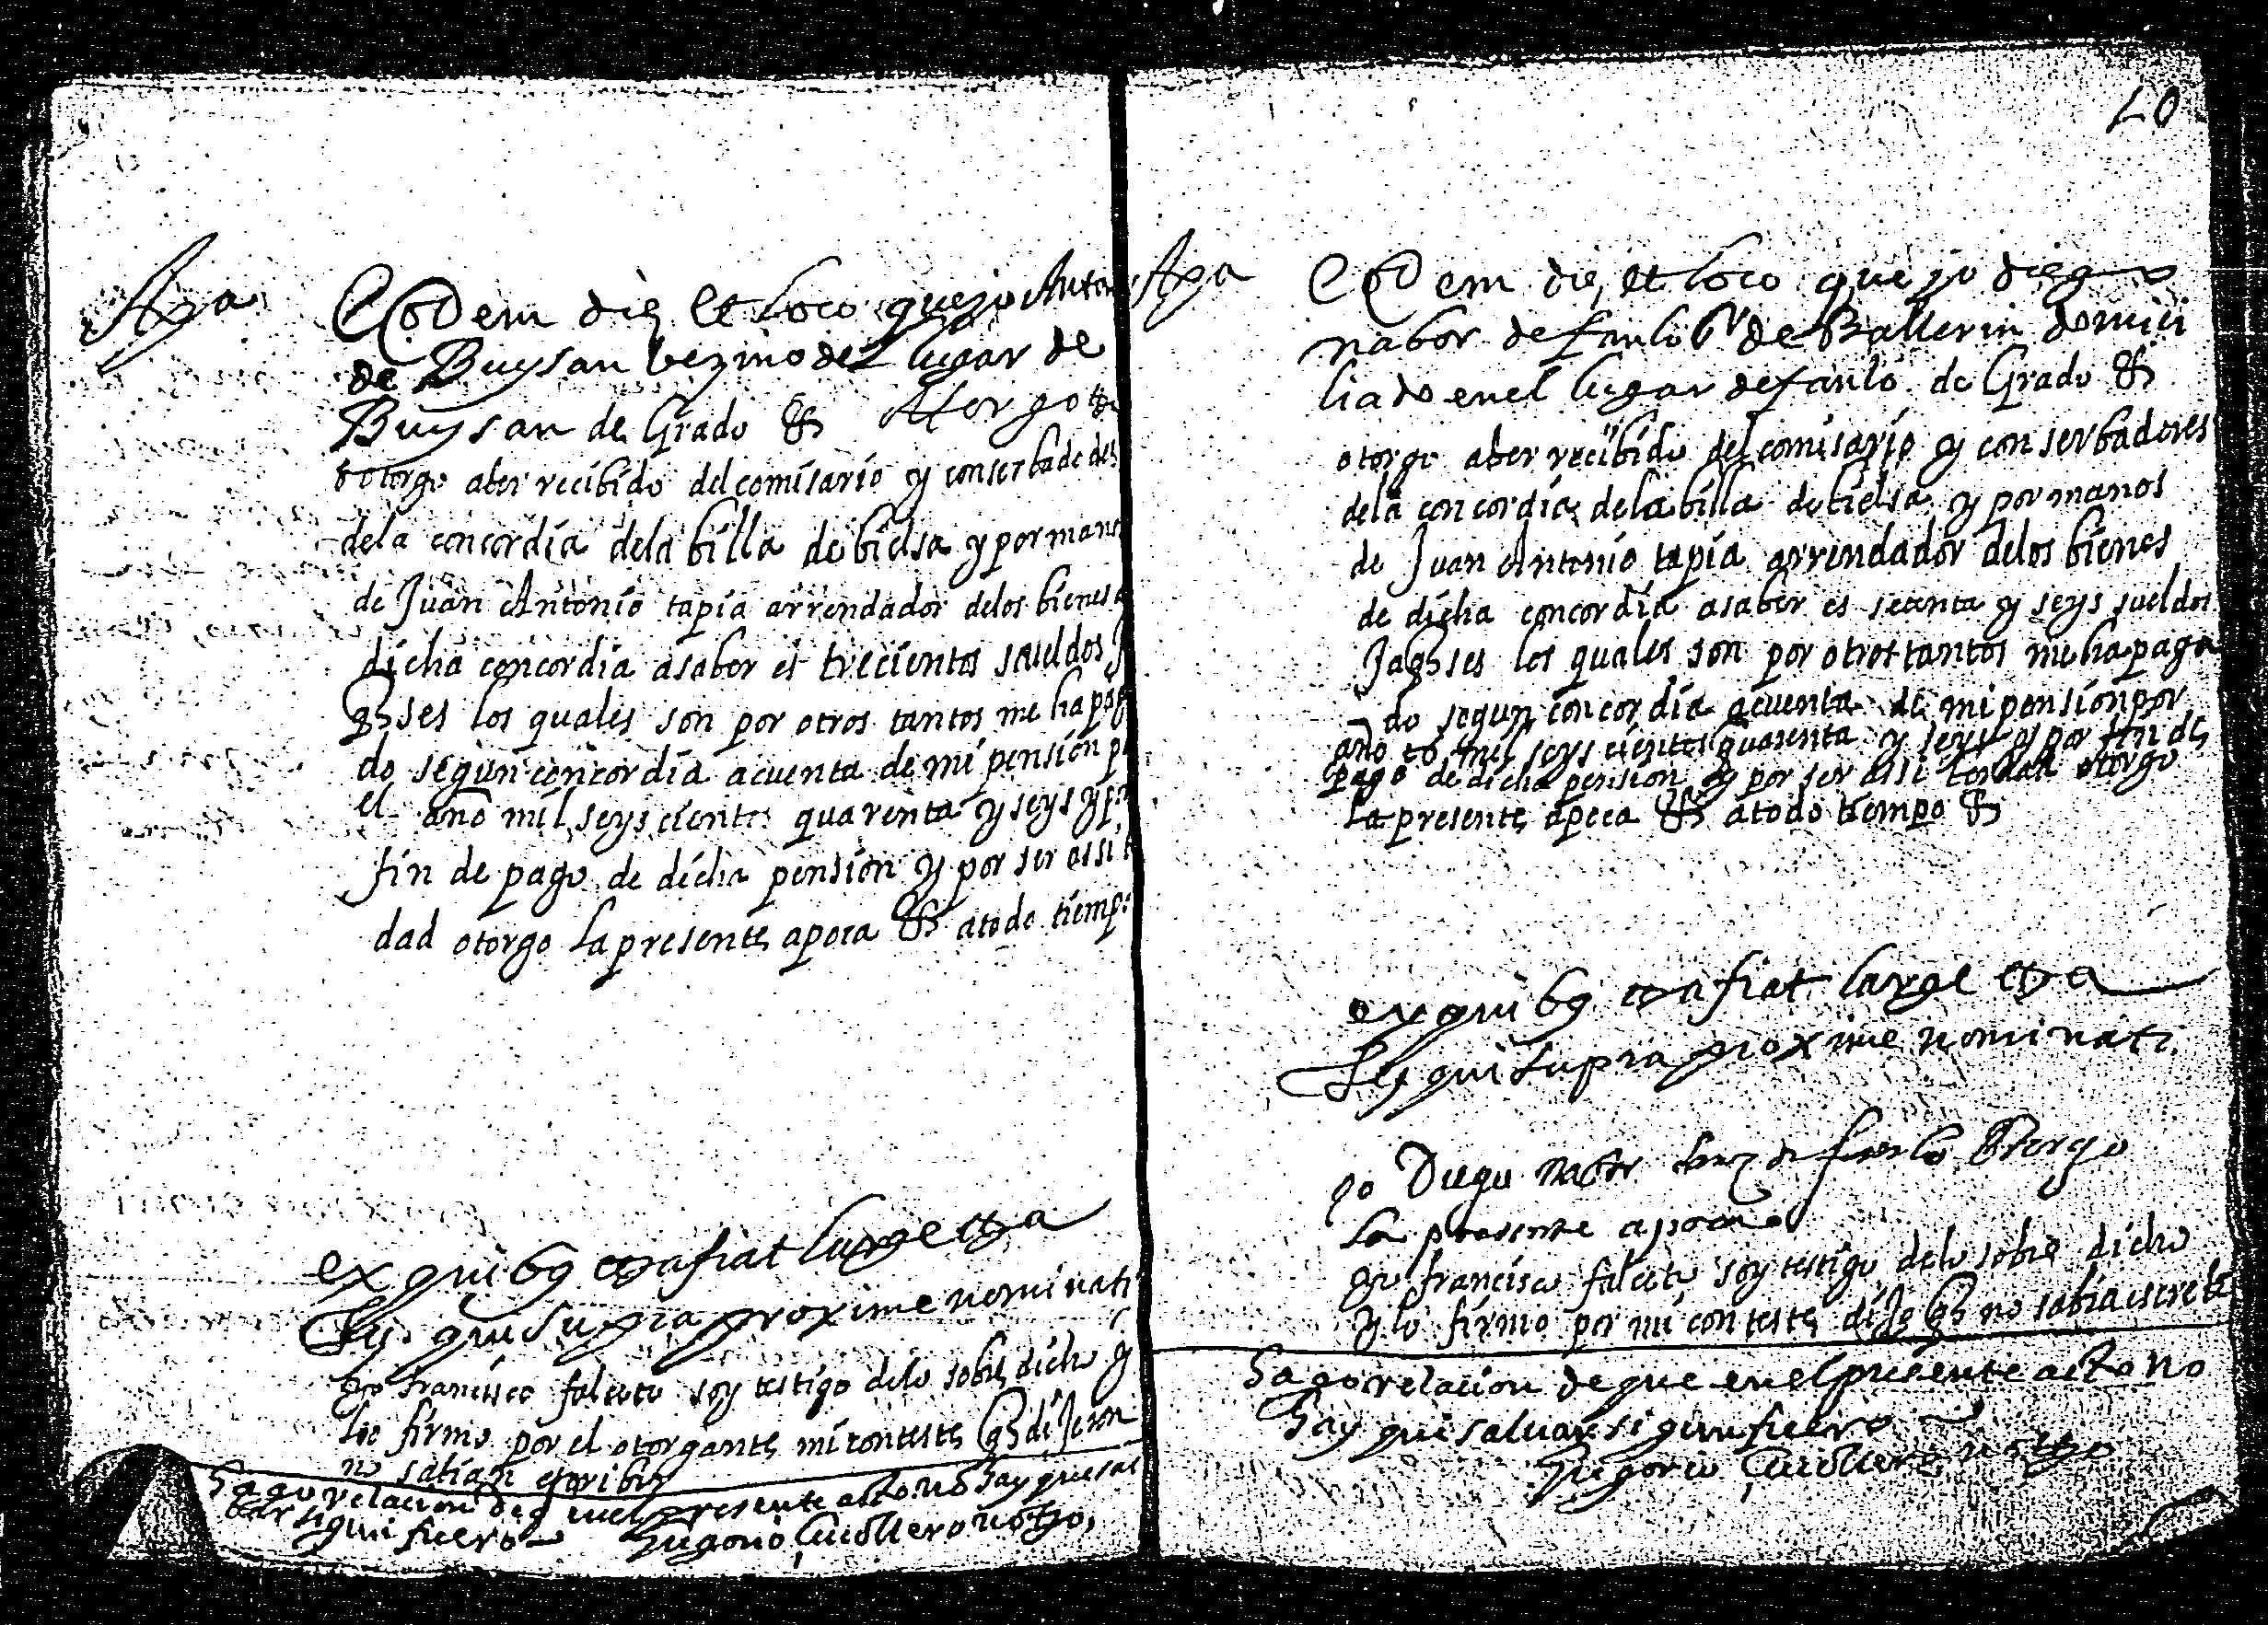 Apa
Eodem die et loco que yo Anton
de Buysan bezino del lugar de
Buysan de Grado &
otorgo aber recibido del comisario y conserbadodes
dela concordia dela billa de bielsa y por mano
de Juan Antonio tapia arrendador delos bienes d
dicha concordia asaber es trecientos sueldos J
qses los quales son por otros tantos me ha pag
do segun concordia acuenta de mi pension p
el año mil seyscientos quarenta y seys y p
fin de pago de dicha pension y por ser assi
dad otorgo la presente apoca & atodo tiempo
ex quibus afiat large
Ts. qui supra proxime nominati
yo francisco falceto soy testigo delo sobre dicho y
lo firmo por el otorgante mi conteste q dijeron
no sabian escribir
Hago relacion de q enel presente acto no hay que sal
bar sigun fuero
Gregorio Curollero notro
20
Apa
Eodem die et loco que yo diego
nabor de fanlo de Ballerin domici
liado enel lugar de fanlo de Grado &
otorgo aber recibido del comisario y conserbadores
dela concordia dela billa de bielsa y por manos
de Juan Antonio tapia arrendador delos bienes
de dicha concordia asaber es setenta y seys sueldos
Jaqses los quales son por otros tantos me ha paga
do segun concordia acuenta de mi pension por
año mil seys cientos quarenta y seys y por fin de
pago de dicha pension y por ser assi otorgo
la presente apoca & atodo tiempo &
ex quibus afiat large
Ts qui supra proxime nominati
yo Diego nabor de fanlo otorgo
la presente apoca
yo francisco falceto soy testigo delo sobre dicho
y lo firmo por mi conteste dijo q no sabia escrebir
Hago relacion de que enel presente acto no
hay que salvar sigun fuero
Gregorio Curollero notro